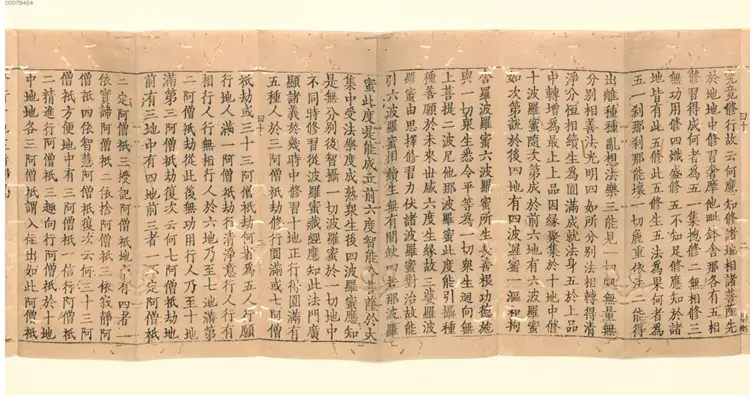 00078454
究竟修行故云何應知修諸地相諸菩薩先
於地地中修習奢摩他毗鉢舍那各有五相
修習得成何者為五一集揔修二無相修三
無功用修四熾盛修五不知足修應知於諸
地皆有此五修此五修生五法為果何者為
五一刹那刹那能壞一切麁重依法二能得
出離種種亂想法樂三能見一切處無量無
分別相善法光明四如所分別法相轉得清
淨分恒相續生為圓滿成就法身五於上品
中轉增為最上上品因緣聚集於十地中修
十波羅蜜隨次第成於前六地有六波羅蜜
如次第說於後四地有四波羅蜜一漚和拘
舍羅波羅蜜六波羅蜜所生長善根功德施
與一切衆生悉令平等為一切衆生迴向無
上菩提二波尼他那波羅蜜此度能引攝種
種善願於未來世感六度生緣故三婆羅波
羅蜜由思擇修習力伏諸波羅蜜對治故能
引六波羅蜜相續生無有間缺四若那波羅
蜜此度是能成立前六度智能令菩薩於大
集中受法樂及成熟衆生後四波羅蜜應知
是無分別後智攝一切波羅蜜於一切地中
不同時修習從波羅蜜藏經應知此法門廣
顯諸義於幾時中修習十地正行得圓滿有
五種人於三阿僧祇劫修行圓滿或七阿僧
祇劫或三十三阿僧祇劫何者為五人行願
行地人滿一阿僧祇劫行清淨意行人行有
相行人行無相行人於六地乃至七地滿第
二阿僧祇劫從此後無功用行人乃至十地
滿第三阿僧祇劫復次云何七阿僧祇劫地
前有三地中有四地前三者一不定阿僧祇
二定阿僧祇三授記阿僧祇地六有四者一
依實諦阿僧祇二依捨阿僧祇三依寂靜阿
僧祇四依智慧阿僧祇復次云何三十三阿
僧祇方便地中有三阿僧祇一信行阿僧祇
二精進行阿僧祇三趣向行阿僧祇於十地
中地地各三阿僧祇謂入住出如此阿僧祇